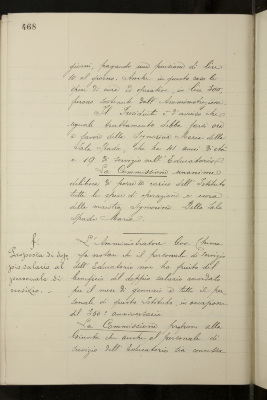 468
giorni, pagando una pensione di lire
al giorno. Anche in questo caso le
spese di cura ed operazioni, in lire 300,
furono sostenute dall'Amministrazione.
Il Presidente è d'avviso che
eguale trattamento debba farsi ora
a favore della Signorina Maria della
Sala Spada, che ha 41 anni di età
e 19 di servizio nell'Educatorio.
La Commissione unanime
delibera di porre a carico dell'Istituto
tutte le spese di operazione e cura
della maestra Signorina Della Sala
Spada Maria.
f.
Proposta di dop
pio salario al
personale di
servizio.
L'Amministratore Cav.
fa notare che il personale di servizio
dell'Educatorio non ha fruito del
beneficio del doppio salario
per il mese di gennaio a tutto il per
sonale di questo Istituto, in occasione
del 300° anniversario.
La Commissione propone alla
che anche al personale di
servizio dell'Educatorio sia